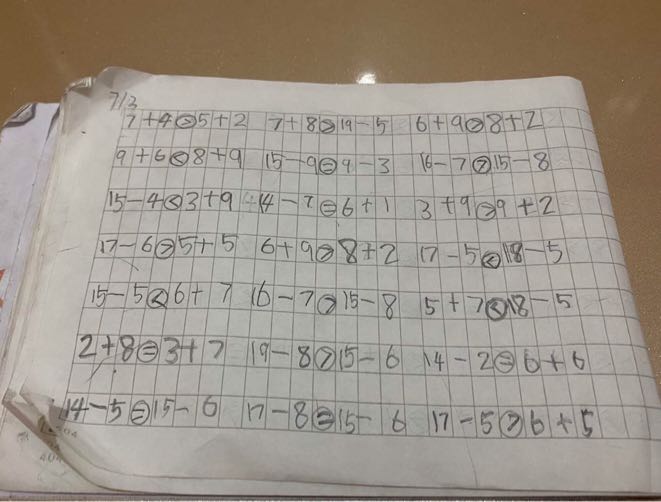 7/3
7+4>5+2 7+8>19-5 6+9>8+2
9+6<8+9 15-9=9-3 16-7>15-8
15-4<3+9 14-7=6+1 3+9>9+2
17-6>5+5 6+9>8+2 17-5<18-5
15-5<6+7 16-7>15-8 5+7<18-5
2+8=3+7 19-8>15-6 14-2=6+6
14-5=15-6 17-8=15-6 17-5>6+5